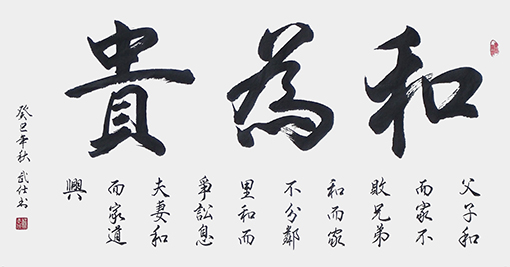 和為貴
父子和
而家不
敗兄弟
和而家
不分鄰
里和而
爭訟息
夫妻和
而家道
興
癸巳年秋 武仕书